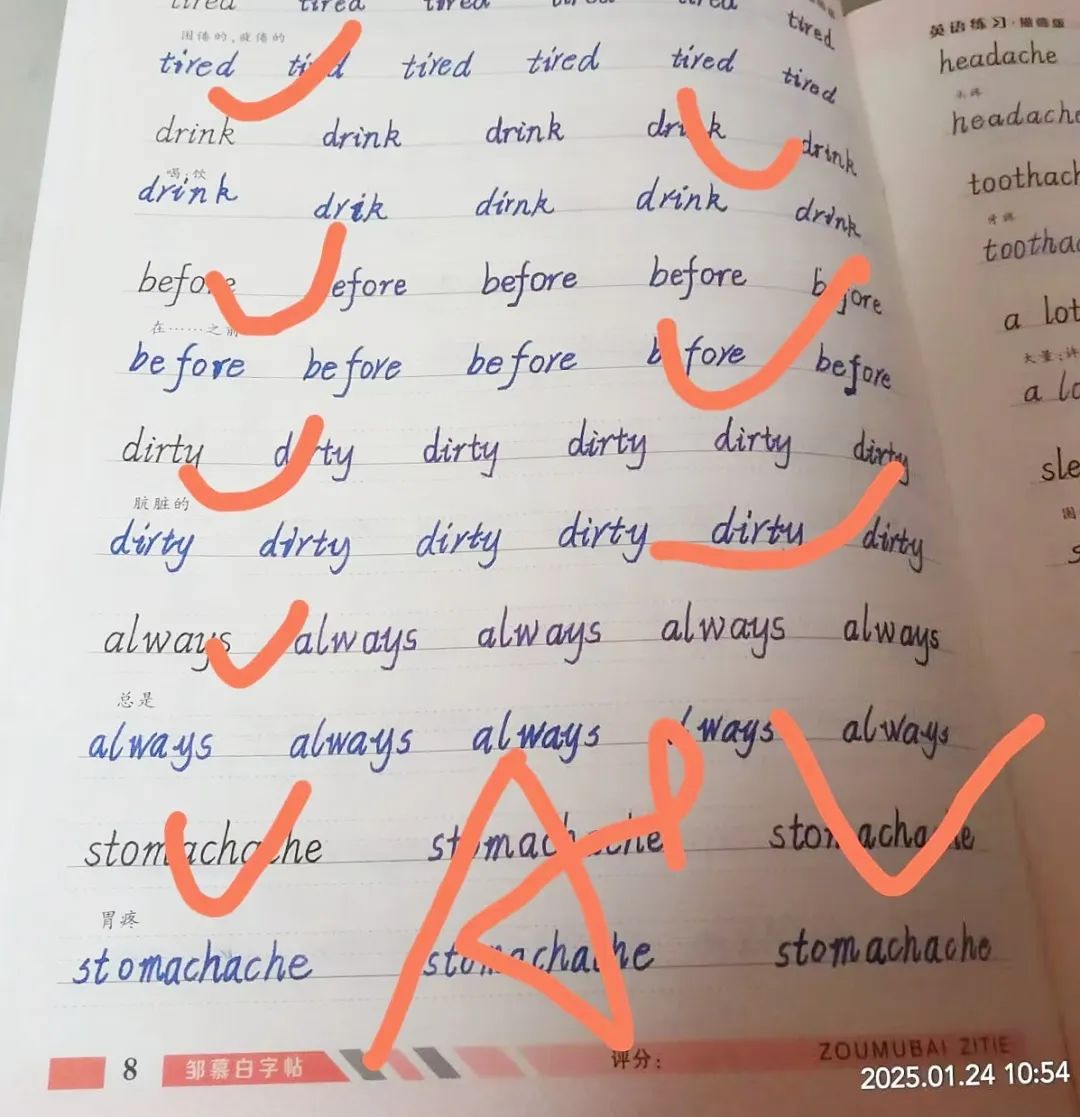 tired tired tired tired tired tired
困倦的,疲倦的
tired tired tired tired tired
drink drink drink drink drink
喝;饮
drink drik dirnk drink drink
before before before before before
在……之前
before before before before before
dirty dirty dirty dirty dirty dirty
肮脏的
dirty dirty dirty dirty dirty dirty
always always always always always
总是
always always always always always
stomachache stomachache stomachache
胃疼
stomachache stomachache stomachache
8 邹慕白字帖 评分: ZOUMUBAI ZITIE
2025.01.24 10:54
英语练习·描临版
headache
头疼
headache
toothach
牙疼
tootha
a lot
大量;许
a lo
sle
困
s